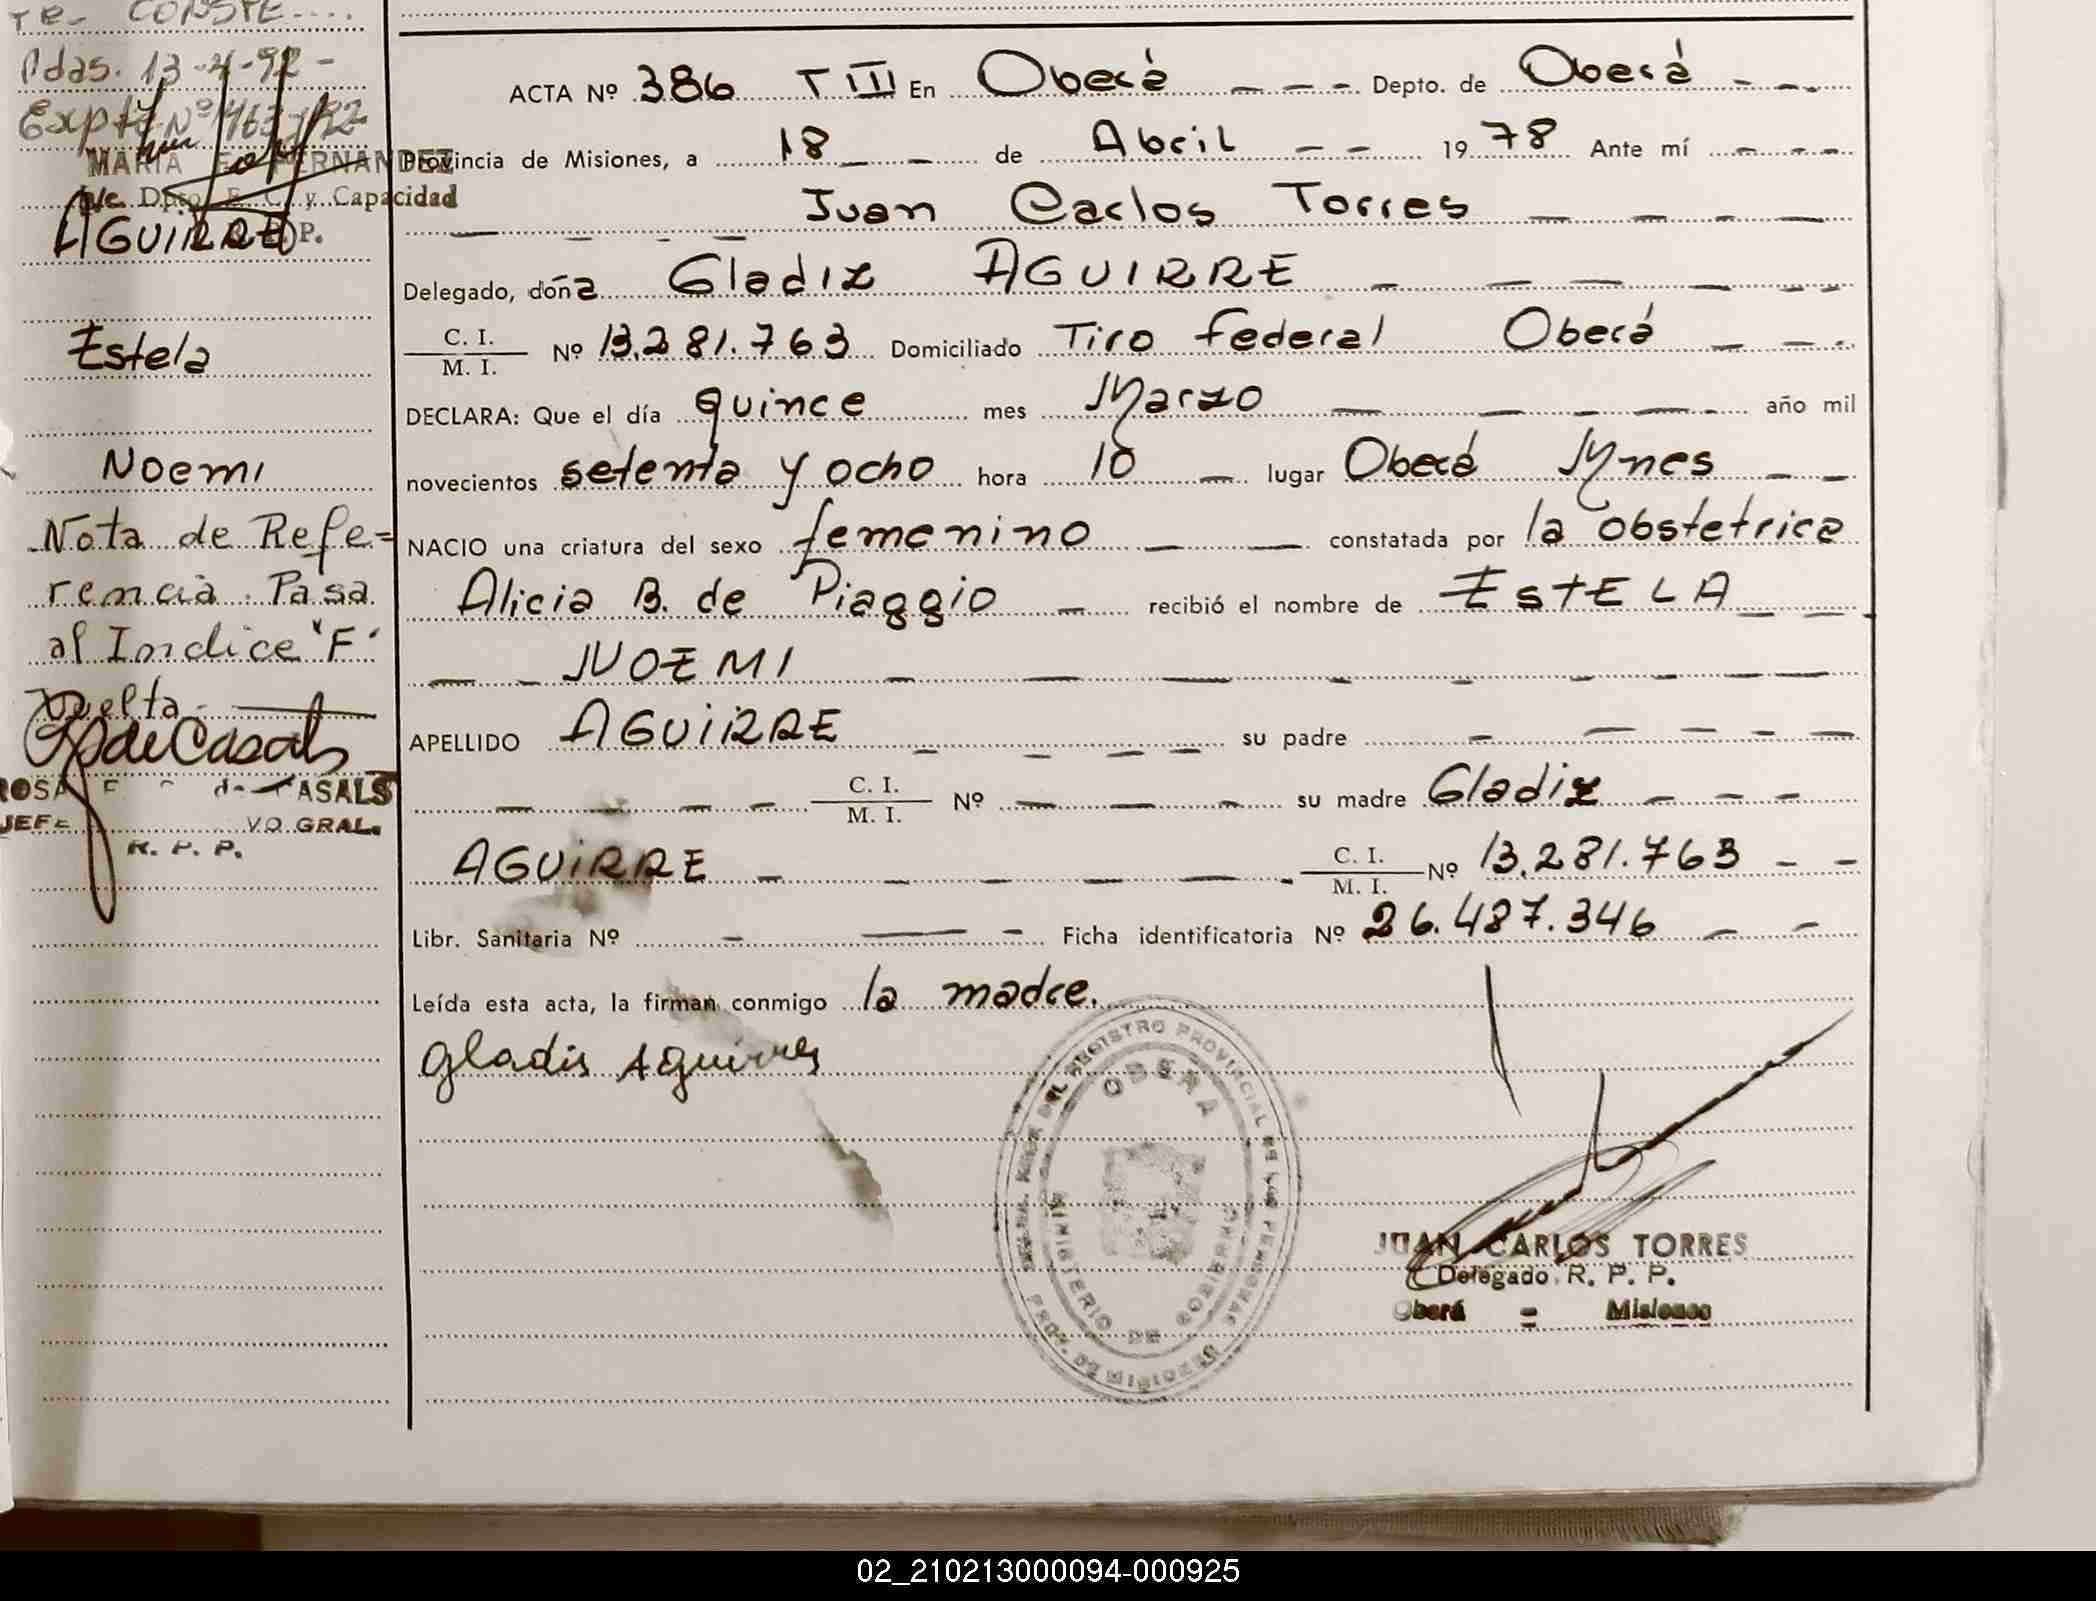 TE- CONSTE....
Pdas. 13-4-92-
Expte Nº 1163/92
MARIA FERNANDEZ
a/c. Dpto. E. C. y Capacidad
R. P. P.
AGUIRRE
Estela
Noemi
Nota de Refe-
rencia. Pasa
al Indice "F"
Vuelta
R. de Casals
ROSA F. de CASALS
JEFE VO GRAL.
R. P. P.
ACTA Nº 386 T III En Oberá Depto. de Oberá
Provincia de Misiones, a 18 de Abril 1978 Ante mí
Juan Carlos Torres
Delegado, doña Gladiz AGUIRRE
C. I.
M. I. Nº 13.281.763 Domiciliado Tiro Federal Oberá
DECLARA: Que el día quince mes Marzo año mil
novecientos setenta y ocho hora 10 lugar Oberá Mnes
NACIO una criatura del sexo femenino constatada por la obstetrica
Alicia B. de Piaggio recibió el nombre de ESTELA
NOEMI
APELLIDO AGUIRRE su padre
C. I.
M. I. Nº su madre Gladiz
AGUIRRE C. I.
M. I. Nº 13.281.763
Libr. Sanitaria Nº Ficha identificatoria Nº 26.487.346
Leída esta acta, la firman conmigo la madre.
Gladis Aguirres
REGISTRO PROVINCIAL DE LAS PERSONAS
OBERA
MINISTERIO DE GOBIERNO
PROV. DE MISIONES
JUAN CARLOS TORRES
Delegado R. P. P.
Oberá - Misiones
02_210213000094-000925